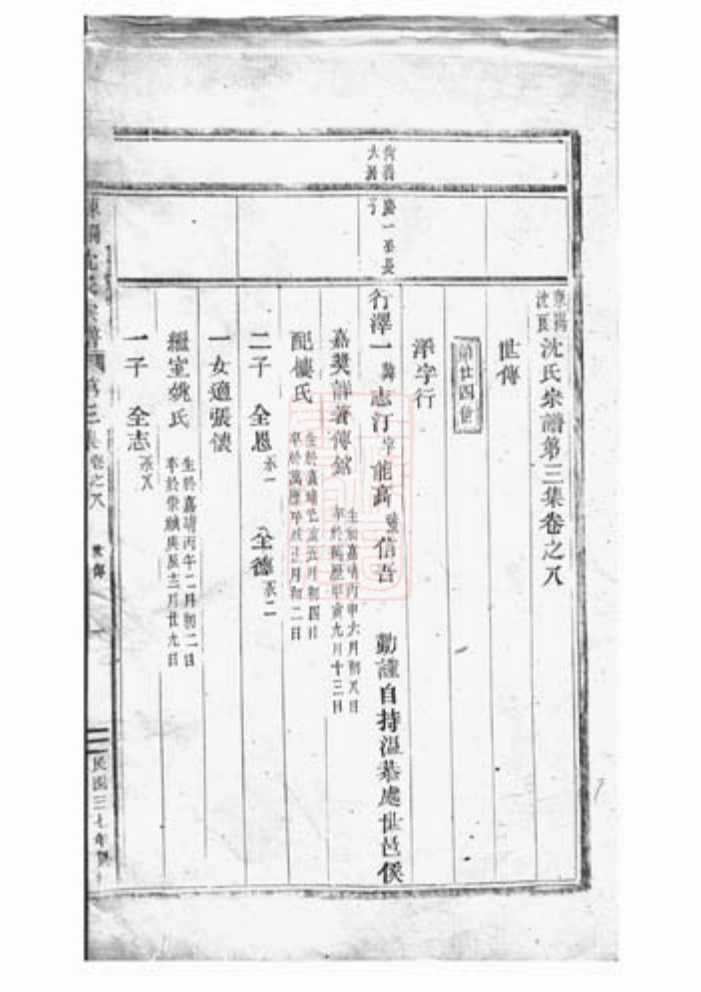 東陽
沈氏宗譜第三集卷之八
世傳
第廿四世
澤字行
長
子
行澤一 諱志汀 字能高 號信吾 勤謹自持溫恭處世邑侯
嘉獎詳著傳銘 生於嘉靖丙申六月初八日
卒於萬曆甲寅九月十三日
配樓氏 生於嘉靖乙亥五月初四日
月初二日
二子 全恩承一 全德承二
一女適張懷
繼室姚氏 生於嘉靖丙午二月初二日
卒於崇禎庚辰三月廿九日
一子 全志承八
東陽沈氏宗譜 第三集 卷之八 世傳 一 民國三七年